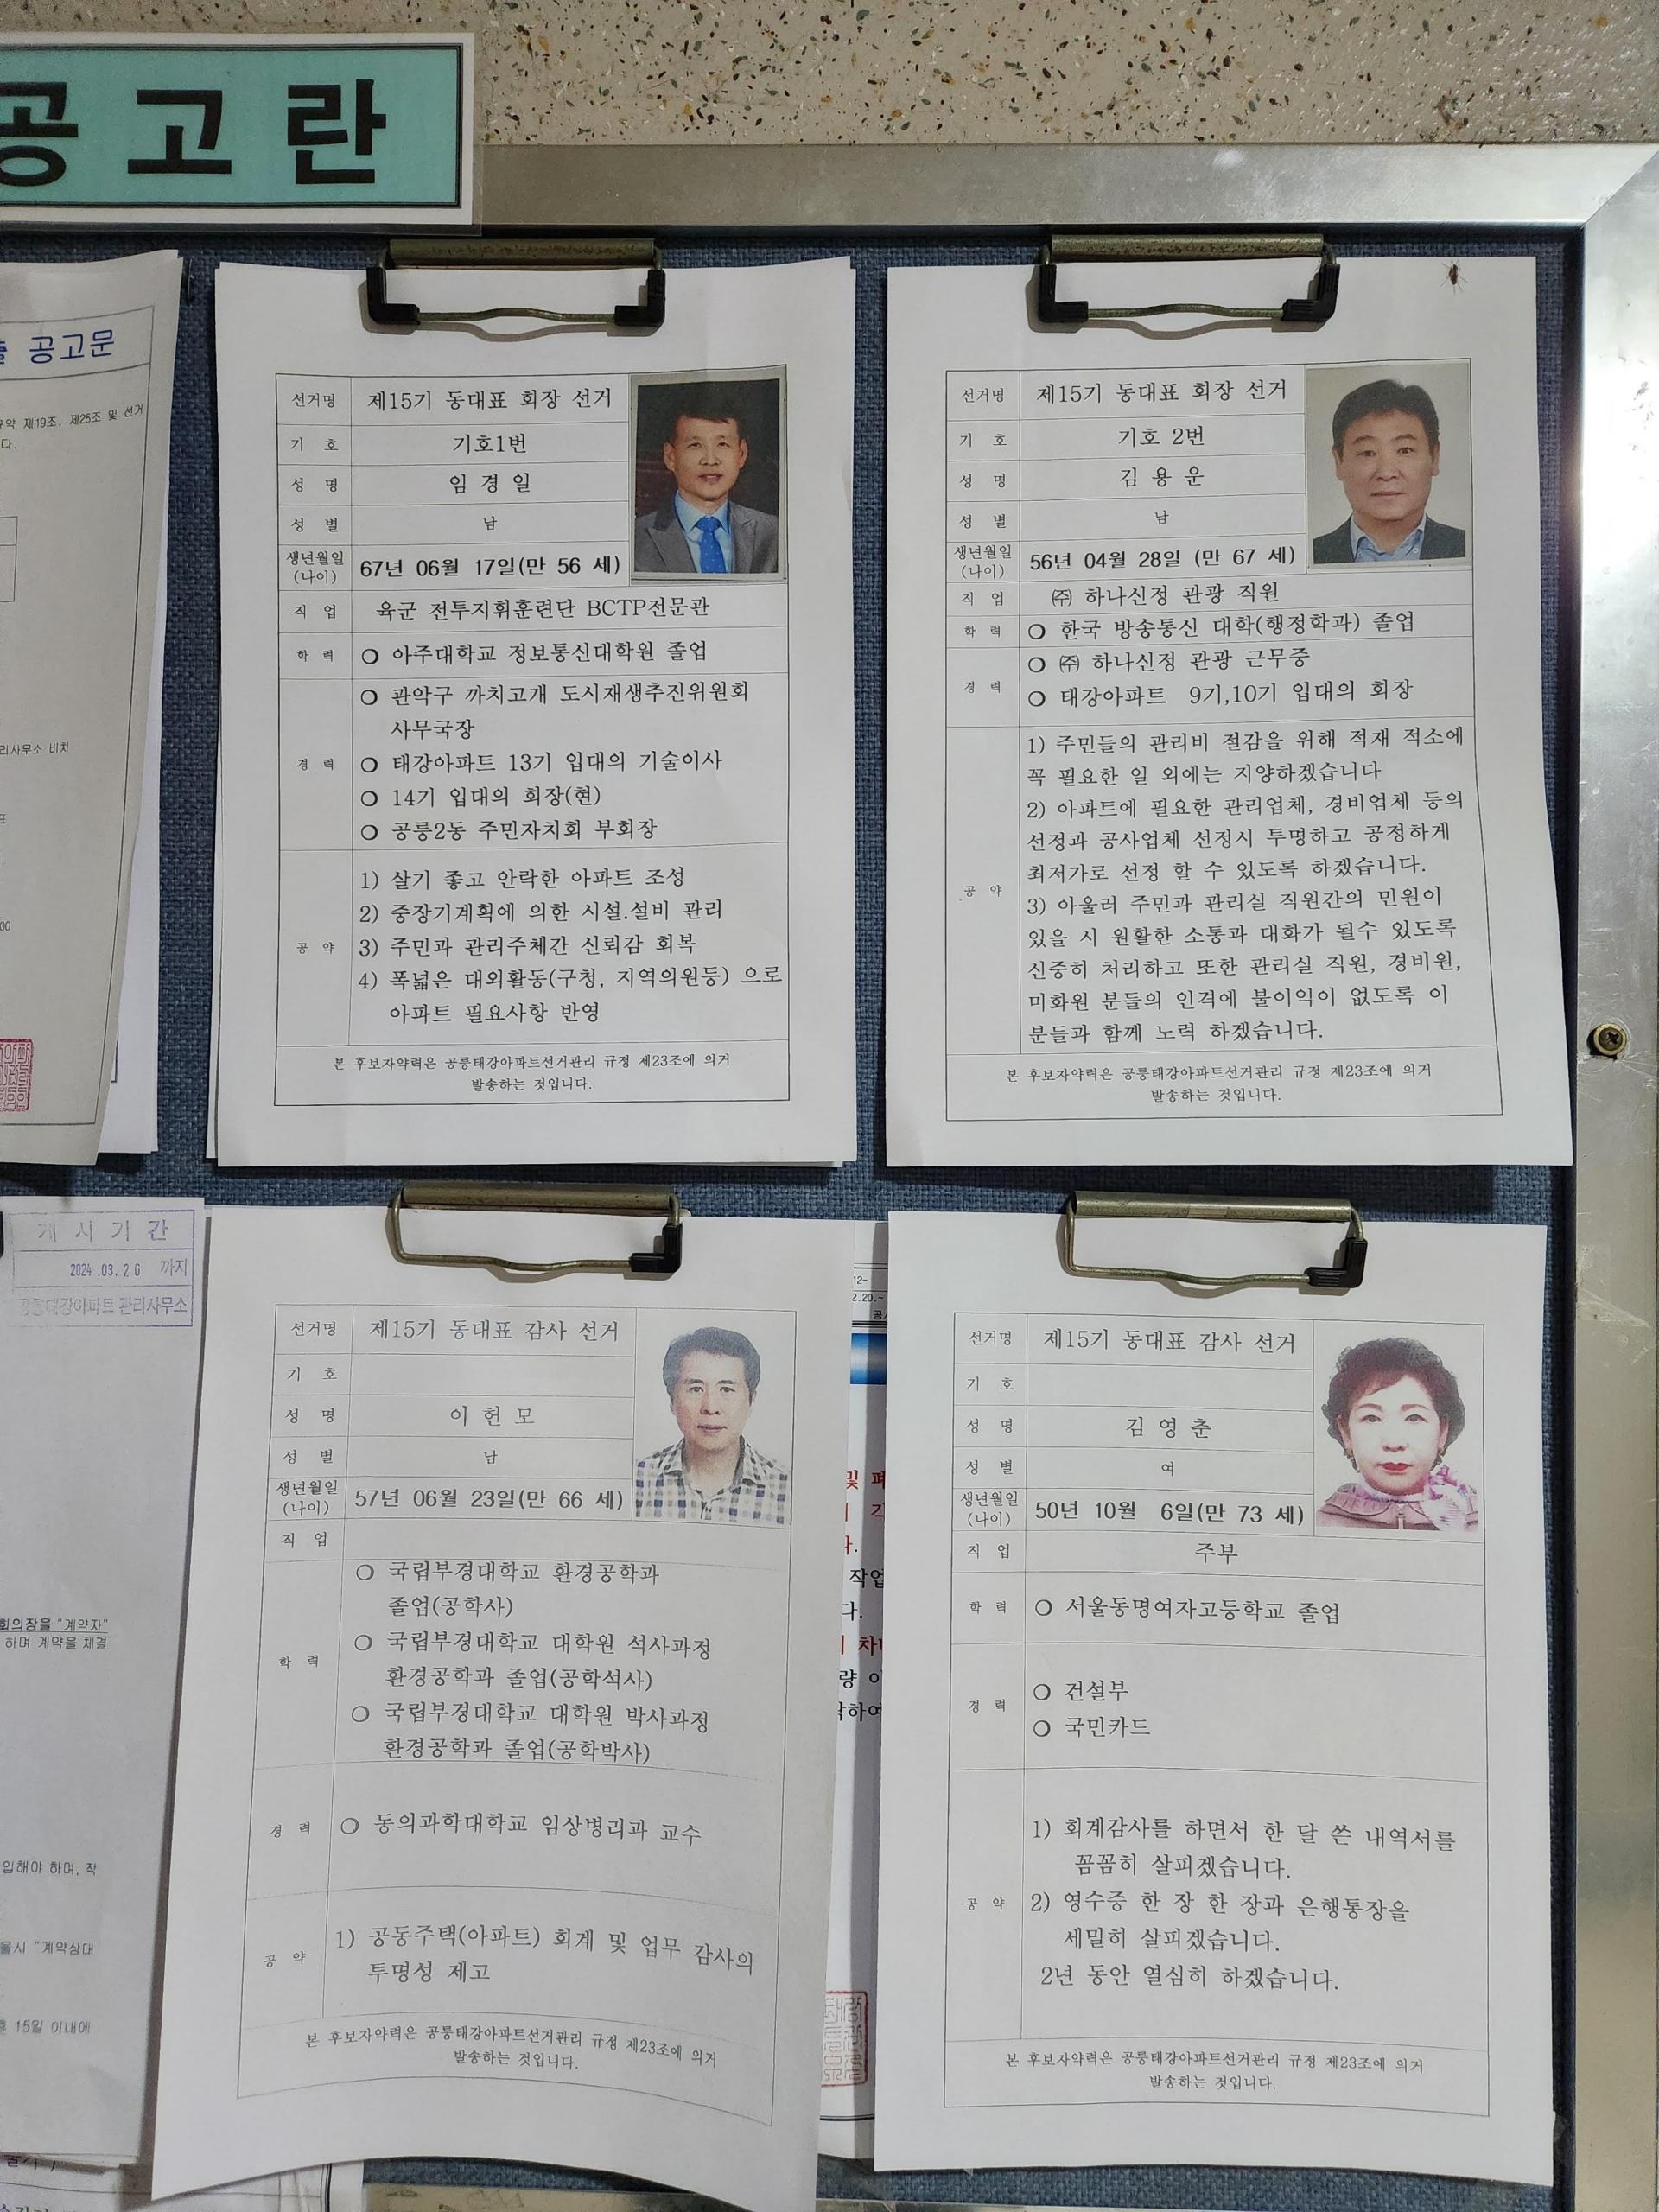 공고란
공고문
제19조, 제25조 및 선거
다.
리사무소 비치
00
선거명 제15기 동대표 회장 선거
기 호 기호1번
성 명 임 경 일
성 별 남
생년월일
(나이) 67년 06월 17일(만 56 세)
직 업 육군 전투지휘훈련단 BCTP전문관
학 력 ○ 아주대학교 정보통신대학원 졸업
경 력 ○ 관악구 까치고개 도시재생추진위원회
사무국장
○ 태강아파트 13기 입대의 기술이사
○ 14기 입대의 회장(현)
○ 공릉2동 주민자치회 부회장
공 약 1) 살기 좋고 안락한 아파트 조성
2) 중장기계획에 의한 시설.설비 관리
3) 주민과 관리주체간 신뢰감 회복
4) 폭넓은 대외활동(구청, 지역의원등) 으로
아파트 필요사항 반영
본 후보자약력은 공릉태강아파트선거관리 규정 제23조에 의거
발송하는 것입니다.
선거명 제15기 동대표 회장 선거
기 호 기호 2번
성 명 김 용 운
성 별 남
생년월일
(나이) 56년 04월 28일 (만 67 세)
직 업 ㈜ 하나신정 관광 직원
학 력 ○ 한국 방송통신 대학(행정학과) 졸업
경 력 ○ ㈜ 하나신정 관광 근무중
○ 태강아파트 9기,10기 입대의 회장
공 약 1) 주민들의 관리비 절감을 위해 적재 적소에
꼭 필요한 일 외에는 지양하겠습니다
2) 아파트에 필요한 관리업체, 경비업체 등의
선정과 공사업체 선정시 투명하고 공정하게
최저가로 선정 할 수 있도록 하겠습니다.
3) 아울러 주민과 관리실 직원간의 민원이
있을 시 원활한 소통과 대화가 될수 있도록
신중히 처리하고 또한 관리실 직원, 경비원,
미화원 분들의 인격에 불이익이 없도록 이
분들과 함께 노력 하겠습니다.
본 후보자약력은 공릉태강아파트선거관리 규정 제23조에 의거
발송하는 것입니다.
게 시 기 간
2024.03.26 까지
공릉태강아파트 관리사무소
회의장을 "계약자"
하며 계약을 체결
입해야 하며, 작
울시 "계약상대
15일 이내에
선거명 제15기 동대표 감사 선거
기 호
성 명 이 헌 모
성 별 남
생년월일
(나이) 57년 06월 23일(만 66 세)
직 업
학 력 ○ 국립부경대학교 환경공학과
졸업(공학사)
○ 국립부경대학교 대학원 석사과정
환경공학과 졸업(공학석사)
○ 국립부경대학교 대학원 박사과정
환경공학과 졸업(공학박사)
경 력 ○ 동의과학대학교 임상병리과 교수
공 약 1) 공동주택(아파트) 회계 및 업무 감사의
투명성 제고
본 후보자약력은 공릉태강아파트선거관리 규정 제23조에 의거
발송하는 것입니다.
12-
2.20.~
및 폐
작업
다.
선거명 제15기 동대표 감사 선거
기 호
성 명 김 영 춘
성 별 여
생년월일
(나이) 50년 10월 6일(만 73 세)
직 업 주부
학 력 ○ 서울동명여자고등학교 졸업
경 력 ○ 건설부
○ 국민카드
공 약 1) 회계감사를 하면서 한 달 쓴 내역서를
꼼꼼히 살피겠습니다.
2) 영수증 한 장 한 장과 은행통장을
세밀히 살피겠습니다.
2년 동안 열심히 하겠습니다.
본 후보자약력은 공릉태강아파트선거관리 규정 제23조에 의거
발송하는 것입니다.